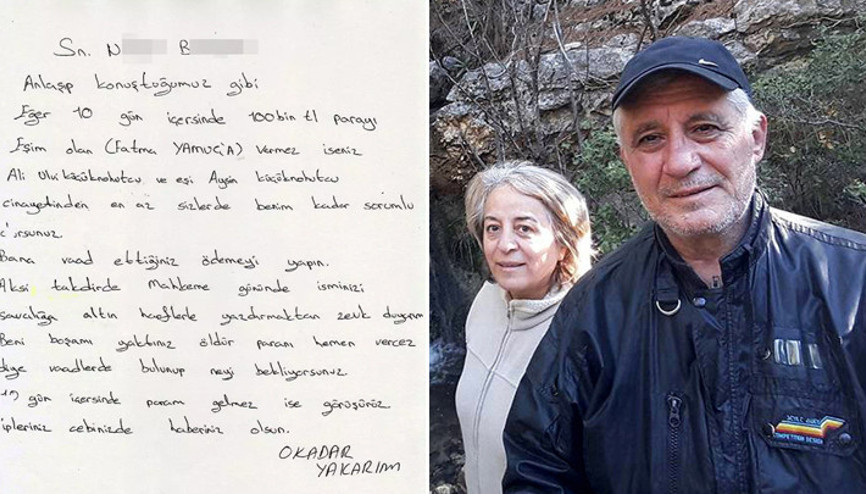 Sn. N B
Anlaşıp konuştuğumuz gibi
Eğer 10 gün içersinde 100bin tl parayı
Eşim olan (Fatma YAMUÇ'A) vermez iseniz
Ali Ulvi küçüknohutcu ve eşi Ayşin küçüknohutcu
cinayetinden en az sizlerde benim kadar sorumlu
Bana vaad ettiğiniz ödemeyi yapın.
Aksi takdirde Mahkeme gününde isminizi
savcılığa altın harflerle yazdırmaktan zevk
Beni başamı yaktınız öldür paranı hemen vercez
diye vaadlerde bulunup neyi bekliyorsunuz
10 gün içersinde param gelmez ise görüşürüz
ipleriniz cebinizde haberiniz olsun.
OKADAR
YAKARIM
COMPETITION DESIGN